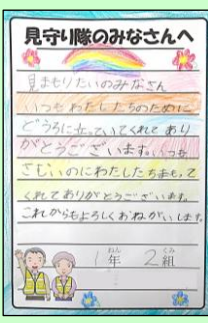 見守り隊のみなさんへ
見まもりたいのみなさん
いつもわたしたちのために
どうろに立っていてくれてあり
がとうございます。いつも
さむいのにわたしたちまもって
くれてありがとうございます。
これからもよろしくおねがいします。
1年 2組
ねん くみ